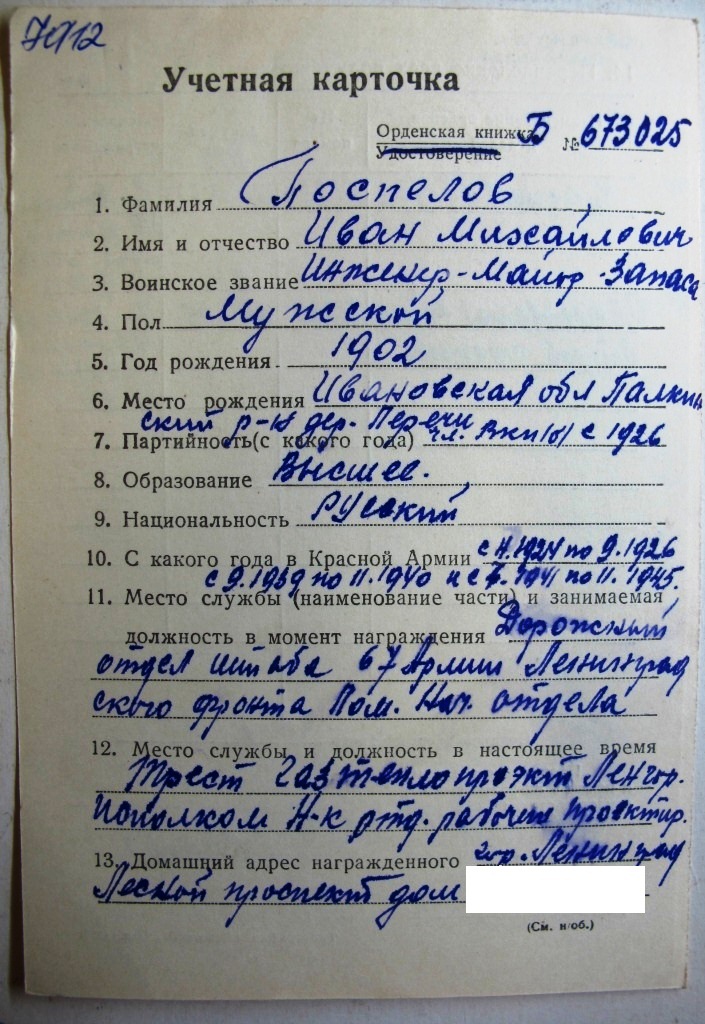 Учетная карточка
Орденская книжка Б № 673025
Удостоверение
1. Фамилия Поспелов
2. Имя и отчество Иван Михайлович
3. Воинское звание Инженер-Майор Запаса
4. Пол Мужской
5. Год рождения 1902
6. Место рождения Ивановская обл Палкин
ский р-н дер. Перечи
7. Партийность (с какого года) чл. ВКП(б) с 1926
8. Образование Высшее.
9. Национальность Русский
10. С какого года в Красной Армии с 11.1924 по 9.1926
с 9.1939 по 11.1940 и с 7.1941 по 11.1945.
11. Место службы (наименование части) и занимаемая
должность в момент награждения Дорожный
отдел штаба 67 Армии Ленинград
ского фронта Пом. Нач. отдела
12. Место службы и должность в настоящее время
Трест Газтеплопроэкт Ленгор.
исполком Н-к отд. рабочих проектир.
13. Домашний адрес награжденного гор. Ленинград
Лесной проспект дом
(См. н/об.)